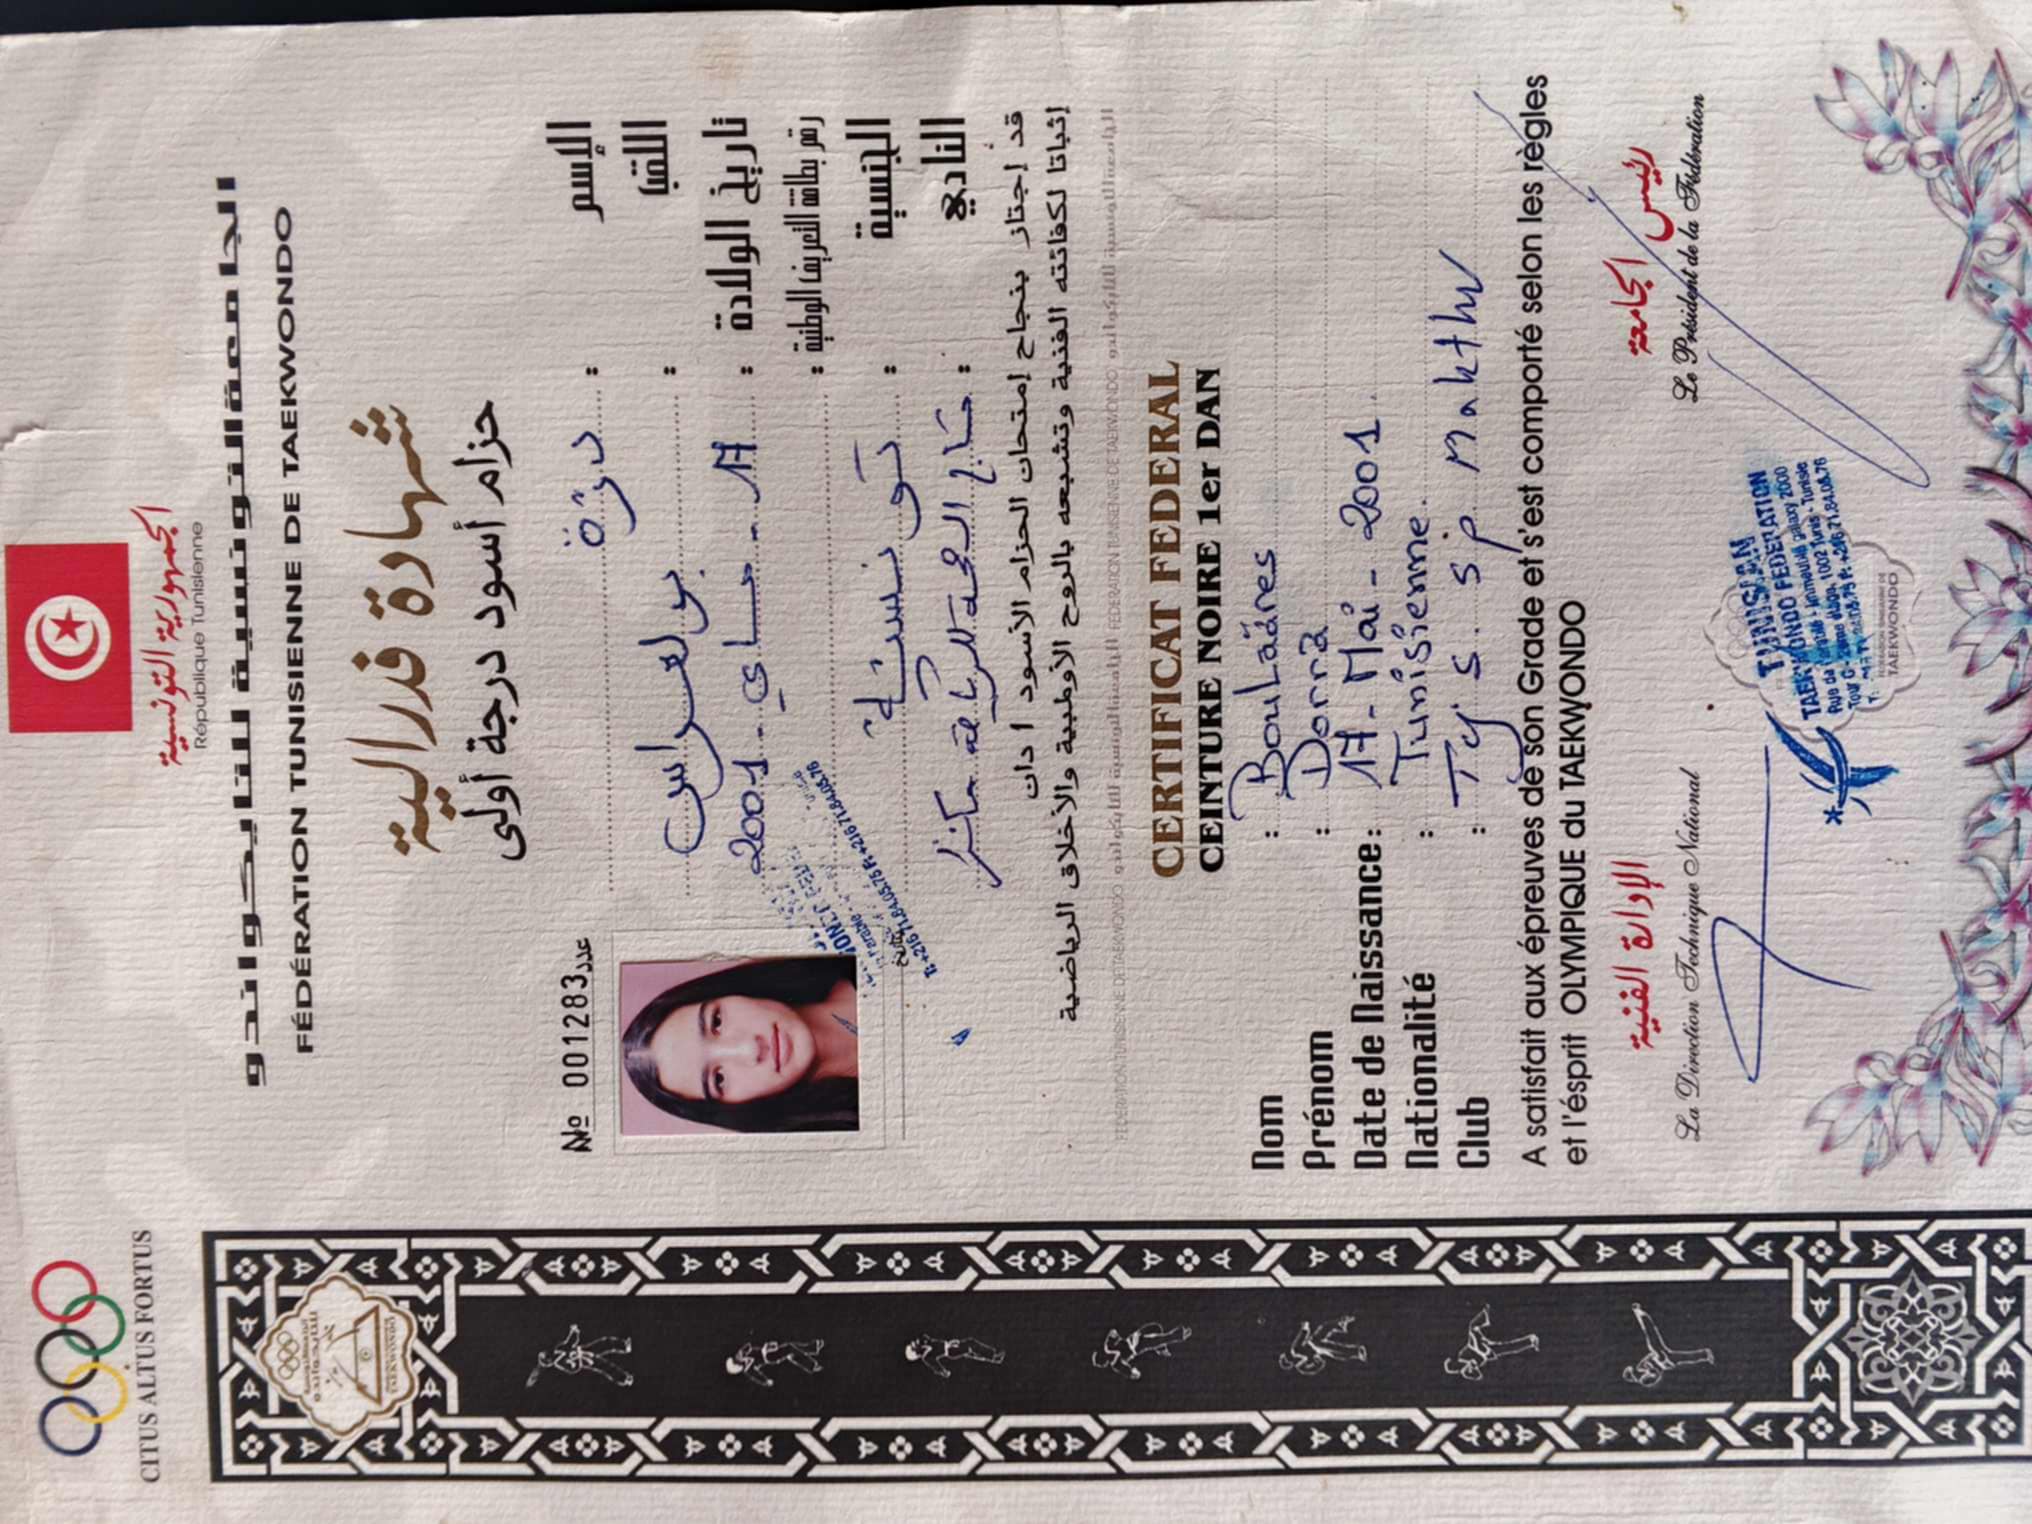 CITUS ALTUS FORTUS
الجمهورية التونسية
République Tunisienne
الجامعة التونسية للتايكواندو
FÉDÉRATION TUNISIENNE DE TAEKWONDO
شهادة فدرالية
حزام أسود درجة أولى
№ 001283 عدد
الإسم : درّة
اللقب : بولعراس
تاريخ الولادة : 17 - ماي - 2001
رقم بطاقة التعريف الوطنية :
الجنسية : تونسية
النادي :
قد إجتاز بنجاح إمتحان الحزام الأسود 1 دان
إثباتا لكفائته الفنية وتشبعه بالروح الأولمبية والأخلاق الرياضية
CERTIFICAT FEDERAL
CEINTURE NOIRE 1er DAN
Nom : BouLaares
Prénom : Dorra
Date de Naissance : 17 - Mai - 2001
Nationalité : Tunisienne
Club :
A satisfait aux épreuves de son Grade et s'est comporté selon les règles
et l'ésprit OLYMPIQUE du TAEKWONDO
الإدارة الفنية رئيس الجامعة
La Direction Technique National Le Président de la Fédération
TUNISIAN
TAEKWONDO FEDERATION
TAEKWONDO